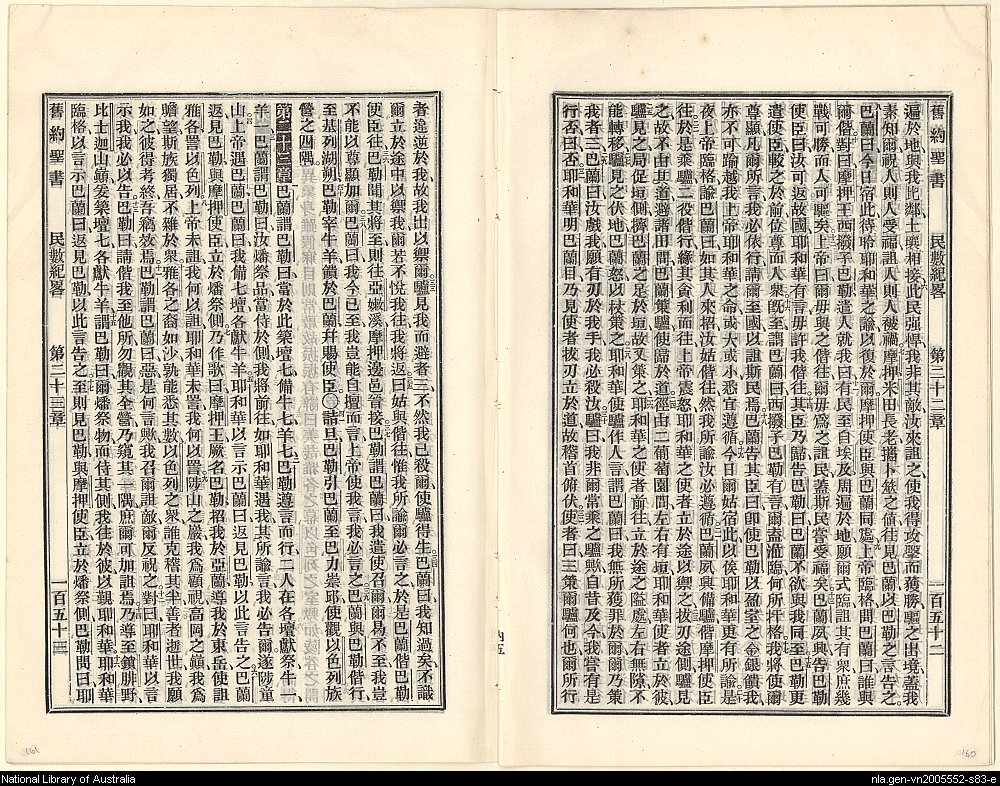 舊約聖書　民數紀畧　第二十二章　一百五十二
遍於地與我比鄰土輿相接此民强悍我非其敵汝來詛之使我得攻擊而獲勝驅之出境蓋我
素知爾祝人則人受福詛人則人被禍摩押米田長老攜卜筮之値往見巴蘭以巴勒之言告之
巴蘭曰今日宿此待聆耶和華之諭以復於爾摩押使臣與巴蘭同處上帝臨格問巴蘭曰誰與
爾偕對曰摩押王西撥子巴勒遣人就我曰有民至自埃及周遍於地願爾式臨詛其有衆庶幾
戰可勝而人可驅矣上帝曰爾毋與之偕往爾毋爲之詛民蓋斯民嘗受福矣巴蘭夙興告巴勒
使臣曰汝可返故國耶和華有言毋許我偕往其臣乃歸告巴勒曰巴蘭不欲與我同至巴勒更
遣使臣較之於前位尊而人衆旣至謂巴蘭曰西撥子巴勒有言爾盍涖臨何所扞格我將使爾
尊顯凡爾所言我必依行請爾至國以詛斯民焉巴蘭告其臣曰卽使巴勒以盈室之金銀饋我
亦不可踰越我上帝耶和華之命或大或小悉宜遵循今日爾姑宿此以俟耶和華更有所諭是
夜上帝臨格諭巴蘭曰如其人來招汝姑偕往然我所諭汝必遵循巴蘭夙興備驢偕摩押使臣
往於是乘驢二役偕行緣其貪利而往上帝震怒耶和華之使者立於途以禦之拔刃途側驢見
之故不由其道避諸田間巴蘭策驢使歸於道徑由二葡萄園間左右有垣耶和華使者立於彼
驢見之局促垣側擠巴蘭之足於垣故又策之耶和華之使者前往立於途之隘處左右無隙不
能轉移驢見之伏地巴蘭怒以杖策之耶和華使驢作人言謂巴蘭曰我無所獲罪於爾爾乃策
我者三巴蘭曰汝戲我願有刃於我手我必殺汝驢曰我非爾常乘之驢歟自昔及今我嘗有是
行否曰否耶和華明巴蘭目乃見使者拔刃立於道故稽首俯伏使者曰三策爾驢何也爾所行
者違逆於我故我出以禦爾驢見我而避者三不然我已殺爾使驢得生巴蘭曰我知過矣不識
爾立於途中以禦我爾若不悅我往我將返曰姑與偕往惟我所諭爾必言之於是巴蘭偕巴勒
使臣往巴勒聞其將至則往亞嫩溪摩押邊邑晉接巴勒謂巴蘭曰我遣使召爾爾曷不至我豈
不能以尊顯加爾巴蘭曰我今已至我豈能自擅而言上帝使我言我必言之巴蘭與巴勒偕行
至基列湖朔巴勒宰牛羊饋於巴蘭幷賜使臣○詰旦巴勒引巴蘭至巴力崇邱使觀以色列族
營之四隅
第二十三章巴蘭謂巴勒曰當於此築壇七備牛七羊七巴勒遵言而行二人在各壇獻祭牛一
羊一巴蘭謂巴勒曰汝燔祭品當侍於側我將前往如耶和華遇我其所諭言我必告爾遂陟童
山上帝遇巴蘭巴蘭曰我備七壇各獻牛羊耶和華以言示巴蘭曰返見巴勒以此言告之巴蘭
返見巴勒與摩押使臣立於燔祭側乃作歌曰摩押王厥名巴勒招我於亞蘭導我於東岳使詛
雅各詈以色列上帝未詛我何以詛耶和華未詈我何以詈陟山之巖我爲顧視高岡之巓我爲
瞻望斯族獨居不雜於衆雅各之裔如沙孰能悉其數以色列之衆誰克稽其半善者逝世我願
如之彼得考終吾竊效焉巴勒謂巴蘭曰惡是何言歟我召爾詛敵爾反祝之對曰耶和華以言
示我我必以告巴勒曰請偕我至他所勿觀其全營乃窺其一隅庶爾可加詛焉乃導至鎖腓野
比士迦山巓爰築壇七各獻牛羊謂巴勒曰爾燔祭物而侍其側我往於彼以覲耶和華耶和華
臨格以言示巴蘭曰返見巴勒以此言告之至則見巴勒與摩押使臣立於燔祭側巴勒問曰耶
舊約聖書　民數紀畧　第二十三章　一百五十三
內五
161
160
National Library of Australia
nla.gen-vn2005552-s83-e